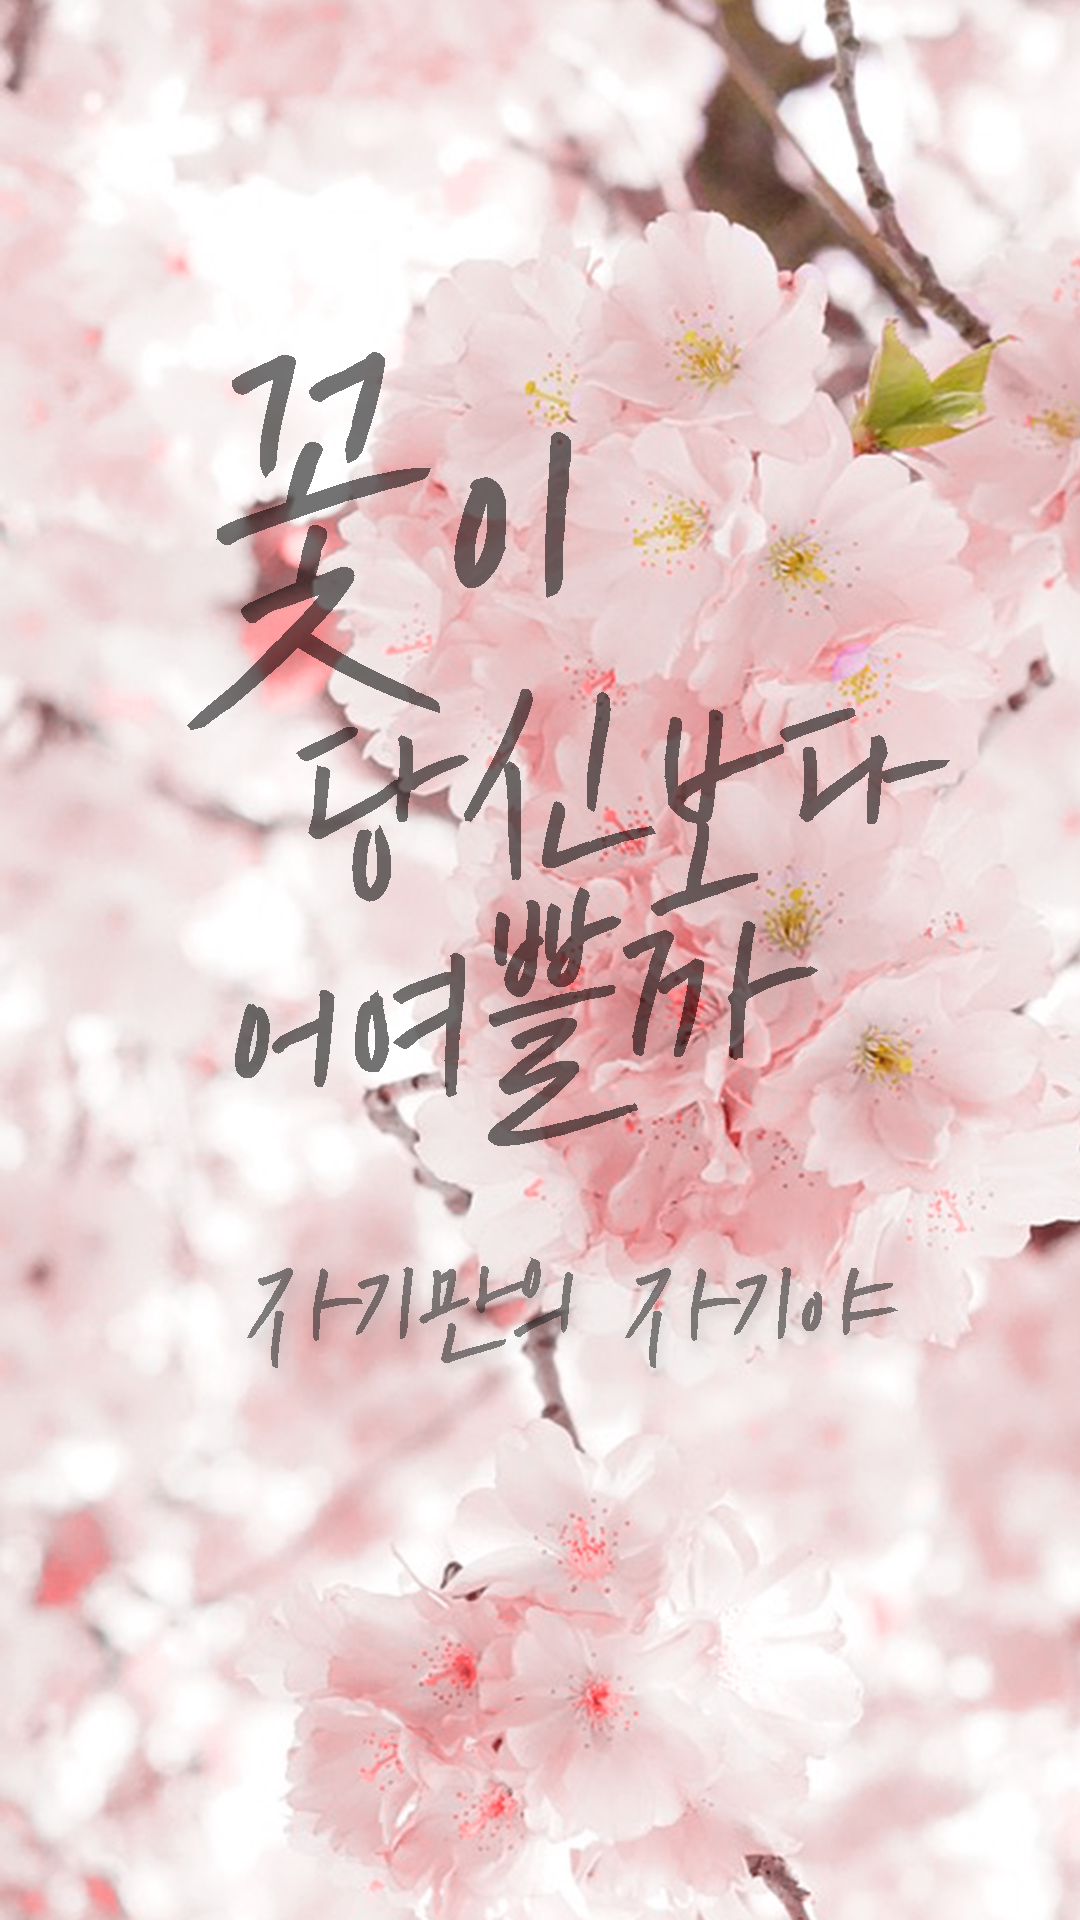 꽃이
당신보다
어여쁠까
자기만의 자기야